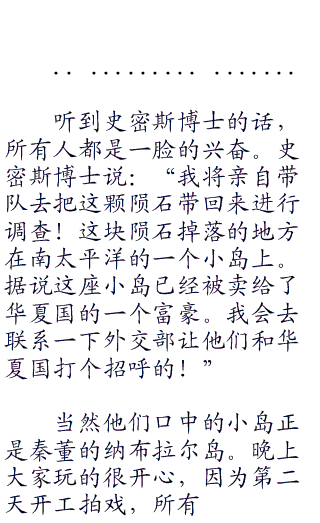 .. ......... .......
听到史密斯博士的话，
所有人都是一脸的兴奋。史
密斯博士说：“我将亲自带
队去把这颗陨石带回来进行
调查！这块陨石掉落的地方
在南太平洋的一个小岛上。
据说这座小岛已经被卖给了
华夏国的一个富豪。我会去
联系一下外交部让他们和华
夏国打个招呼的！”
当然他们口中的小岛正
是秦董的纳布拉尔岛。晚上
大家玩的很开心，因为第二
天开工拍戏，所有